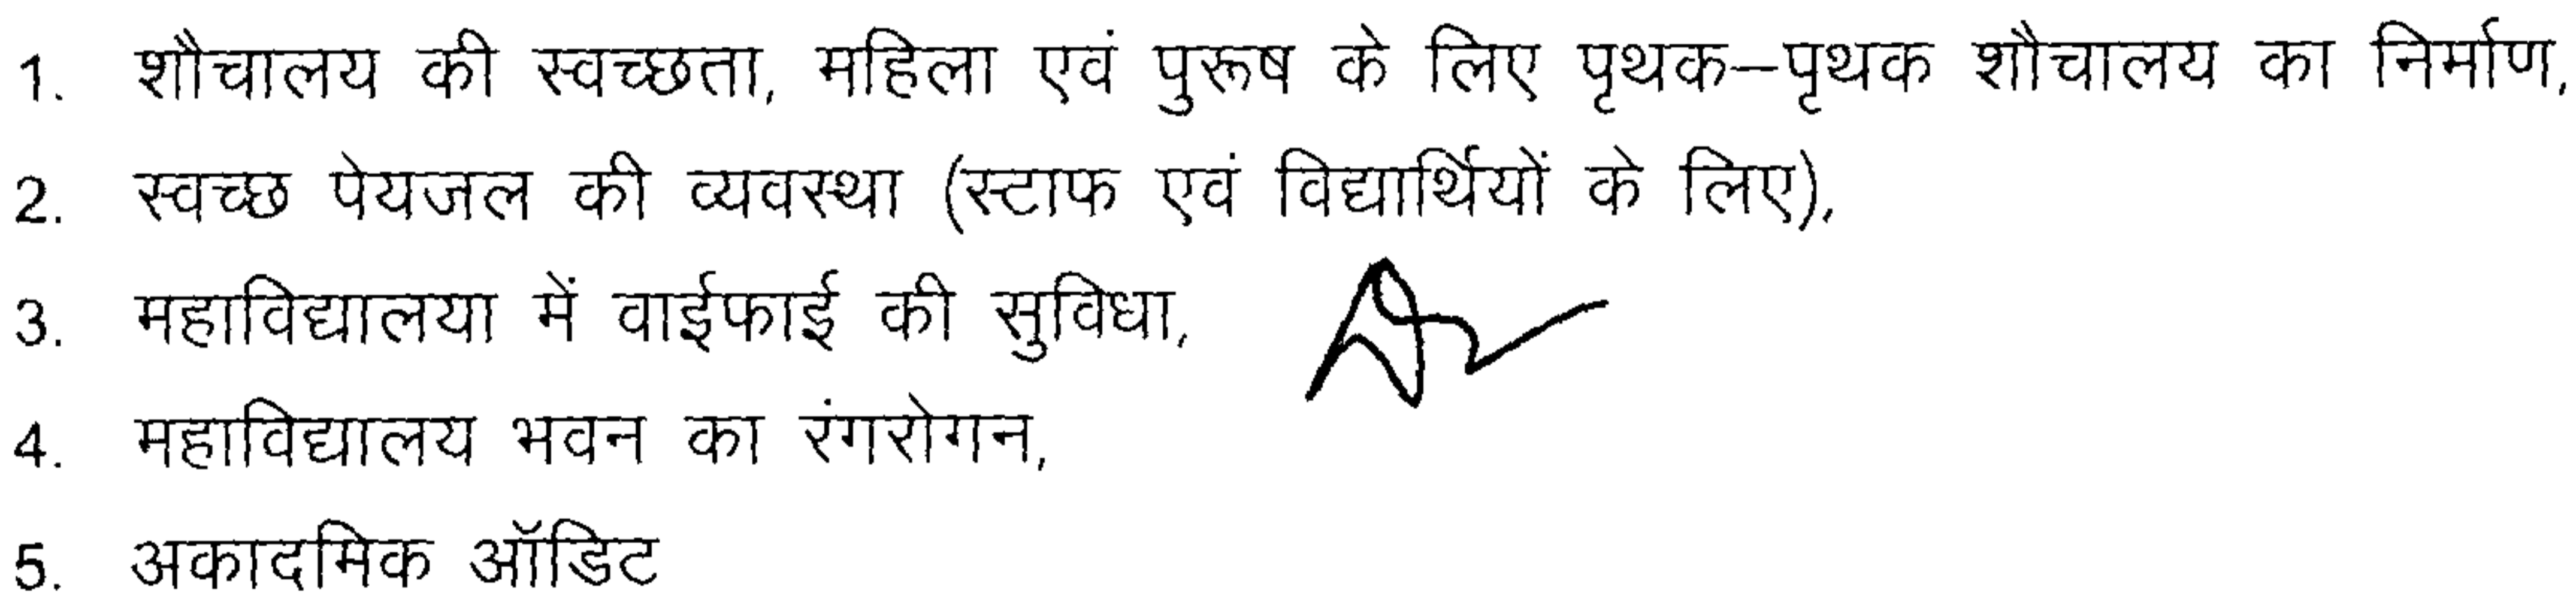 1. शौचालय की स्वच्छता, महिला एवं पुरूष के लिए पृथक–पृथक शौचालय का निर्माण,
2. स्वच्छ पेयजल की व्यवस्था (स्टाफ एवं विद्यार्थियों के लिए),
3. महाविद्यालया में वाईफाई की सुविधा,
4. महाविद्यालय भवन का रंगरोगन,
5. अकादमिक ऑडिट